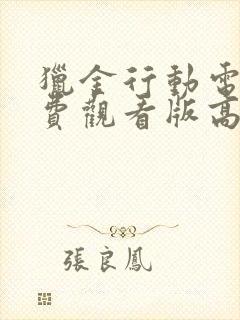 獵金行動電
費觀看版高
張良鳳